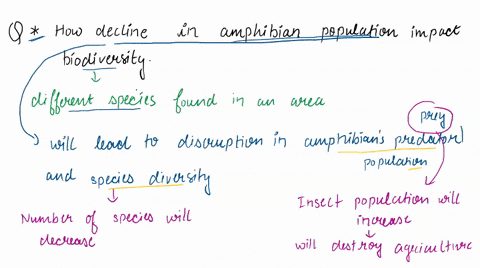 Q * How decline in amphibian population impact
biodiversity.
different species found in an area
prey
will lead to discruption in amphibian's predator
population
and species diversity
Number of species will
decrease
Insect population will
increase
will destroy agriculture